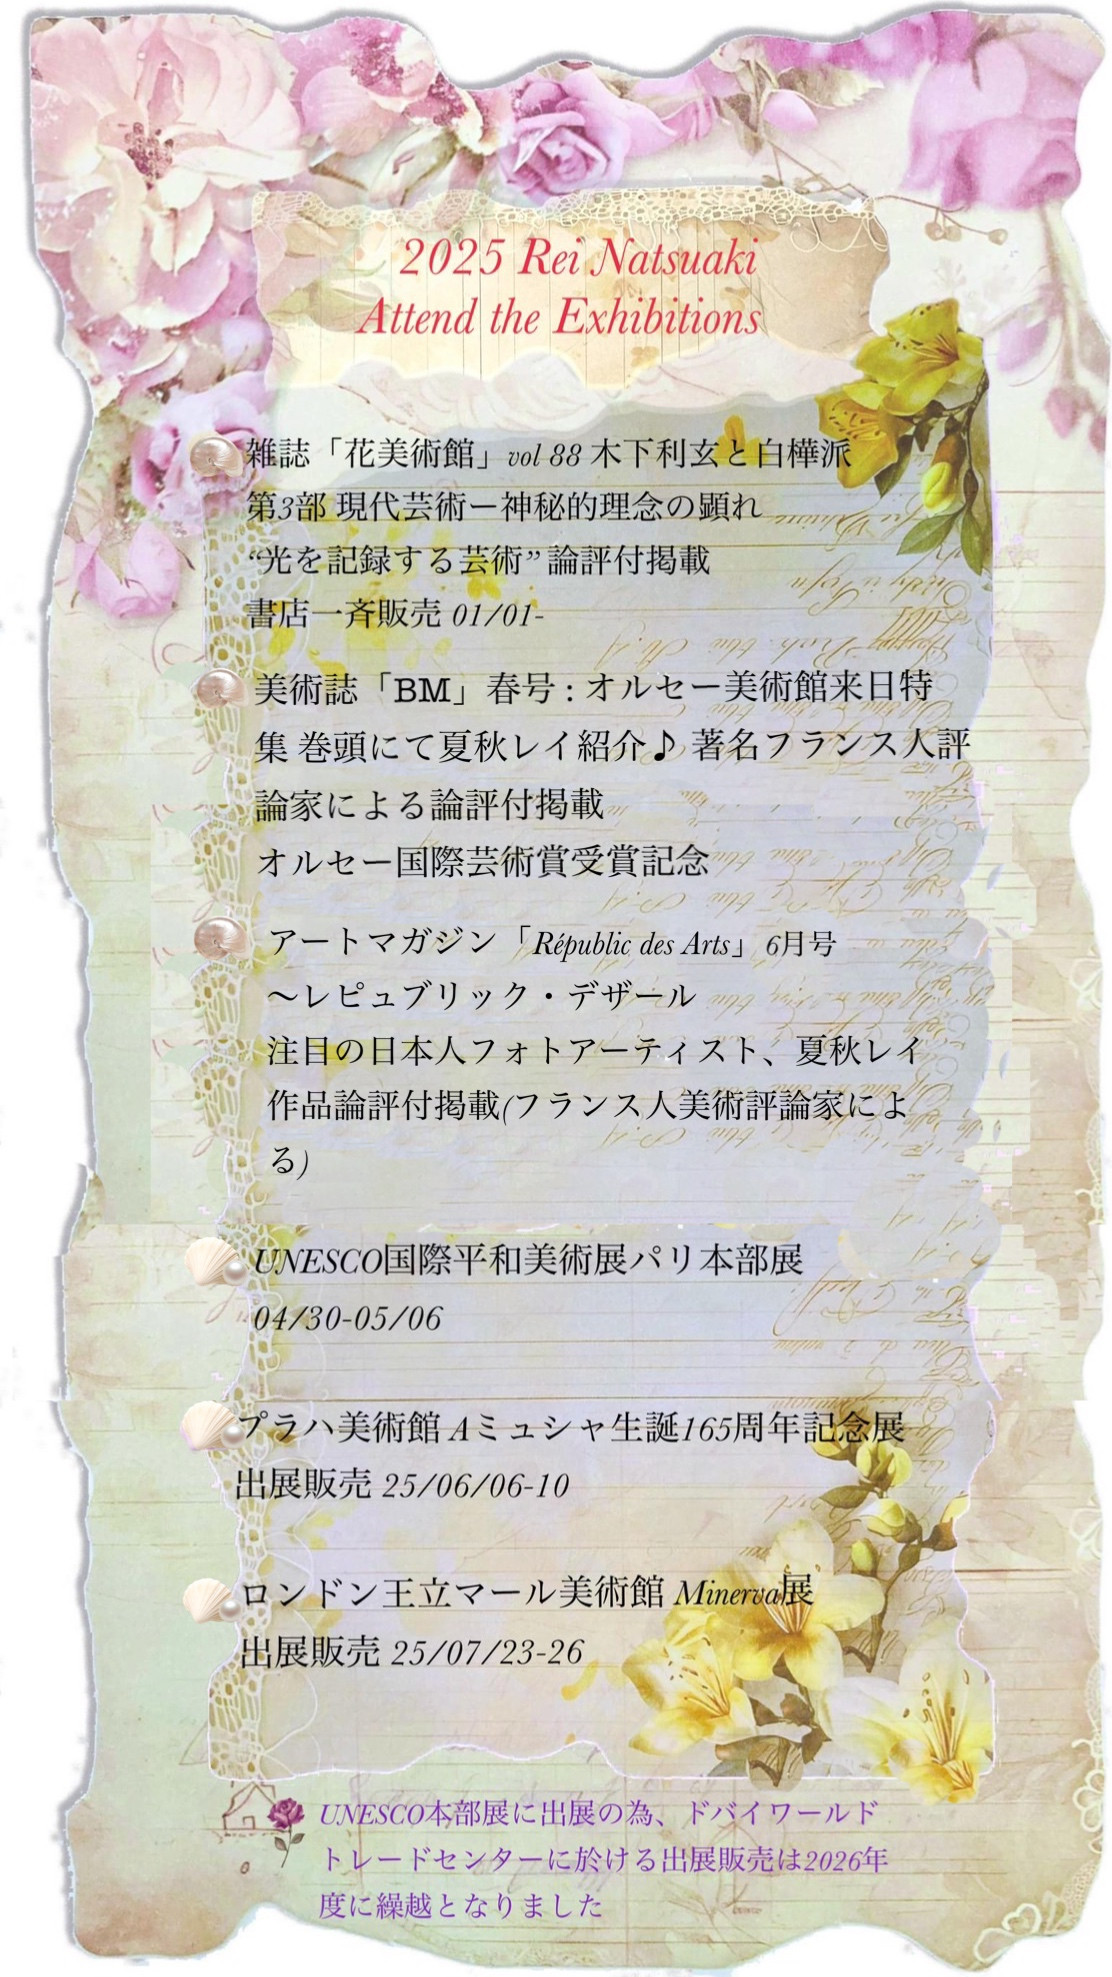 2025 Rei Natsuaki
Attend the Exhibitions
雑誌「花美術館」vol 88 木下利玄と白樺派
第3部 現代芸術ー神秘的理念の顕れ
“光を記録する芸術” 論評付掲載
書店一斉販売 01/01-
美術誌「BM」春号 : オルセー美術館来日特
集 巻頭にて夏秋レイ紹介♪ 著名フランス人評
論家による論評付掲載
オルセー国際芸術賞受賞記念
アートマガジン「Républic des Arts」6月号
〜レピュブリック・デザール
注目の日本人フォトアーティスト、夏秋レイ
作品論評付掲載(フランス人美術評論家によ
る)
UNESCO国際平和美術展パリ本部展
04/30-05/06
プラハ美術館 Aミュシャ生誕165周年記念展
出展販売 25/06/06-10
ロンドン王立マール美術館 Minerva展
出展販売 25/07/23-26
UNESCO本部展に出展の為、ドバイワールド
トレードセンターに於ける出展販売は2026年
度に繰越となりました